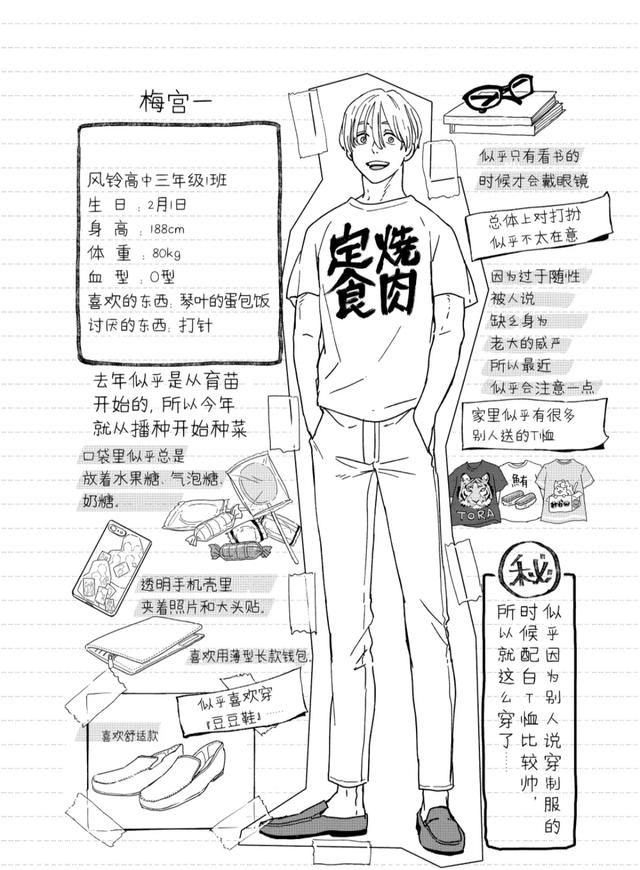 梅宫一
风铃高中三年级1班
生日：2月1日
身高：188cm
体重：80kg
血型：O型
喜欢的东西：琴叶的蛋包饭
讨厌的东西：打针
去年似乎是从育苗
开始的，所以今年
就从播种开始种菜
口袋里似乎总是
放着水果糖、气泡糖、
奶糖。
透明手机壳里
夹着照片和大头贴。
喜欢用薄型长款钱包。
似乎喜欢穿
『豆豆鞋』……
喜欢舒适款
定食
烧肉
似乎只有看书的
时候才会戴眼镜
总体上对打扮
似乎不太在意
因为过于随性
被人说
缺乏身为
老大的威严
所以最近
似乎会注意一点
家里似乎有很多
别人送的T恤
TORA
鮪
秘
似乎因为别人说穿制服的
时候配白T恤比较帅，
所以就这么穿了……